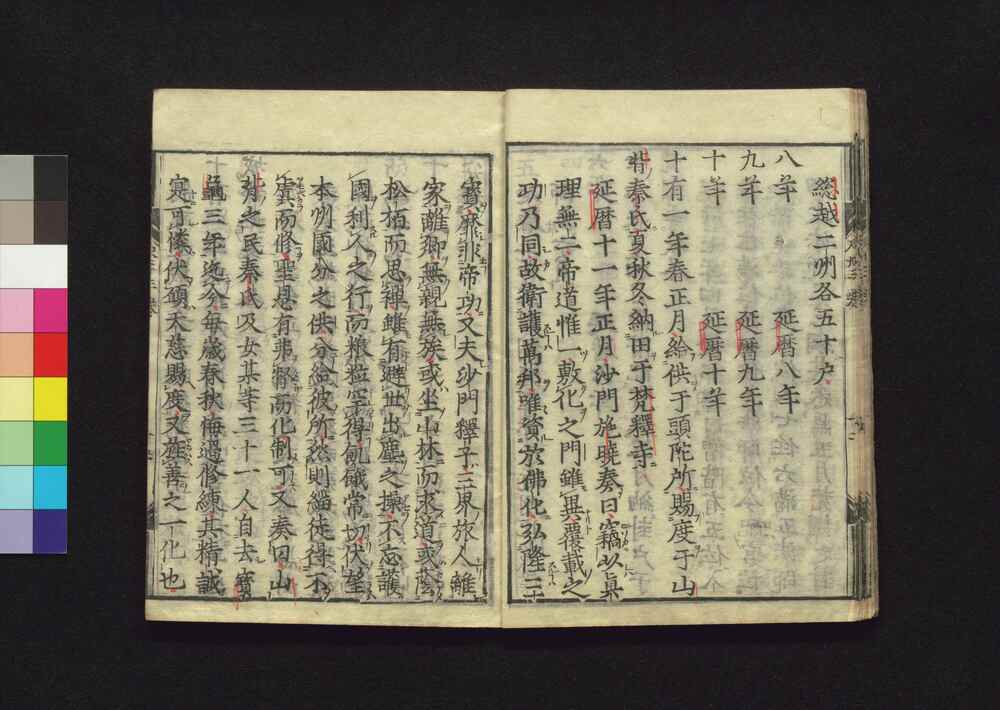 総越二州各五十户
八年　延暦八年
九年　延暦九年
十年　延暦十年
十有一年春正月給供于頭陀所賜度于山
背秦氏夏秋冬納田于梵釋寺
延暦十一年正月沙門施曉奏曰竊以眞
理無二帝道惟一敷化之門雖異覆載之
功乃同故衛護萬邦唯資於佛化弘隆三
寳靡非帝功又夫沙門釋子三界旅人離
家離郷無親無族或坐山林而求道或蔭
松栢而思禪雖有避世出塵之操不忘護
國利人之行而粮粒空得飢餓常切伏望
本州國分之供分給彼所然則緇徒得不
虞而修聖恩有弗督而化制可又奏曰山
背之民秦氏及女某等三十一人自去寳
龜三年迄今每歲春秋悔過修練其精誠
寔可憐伏願天慈賜度又旌善之一化也